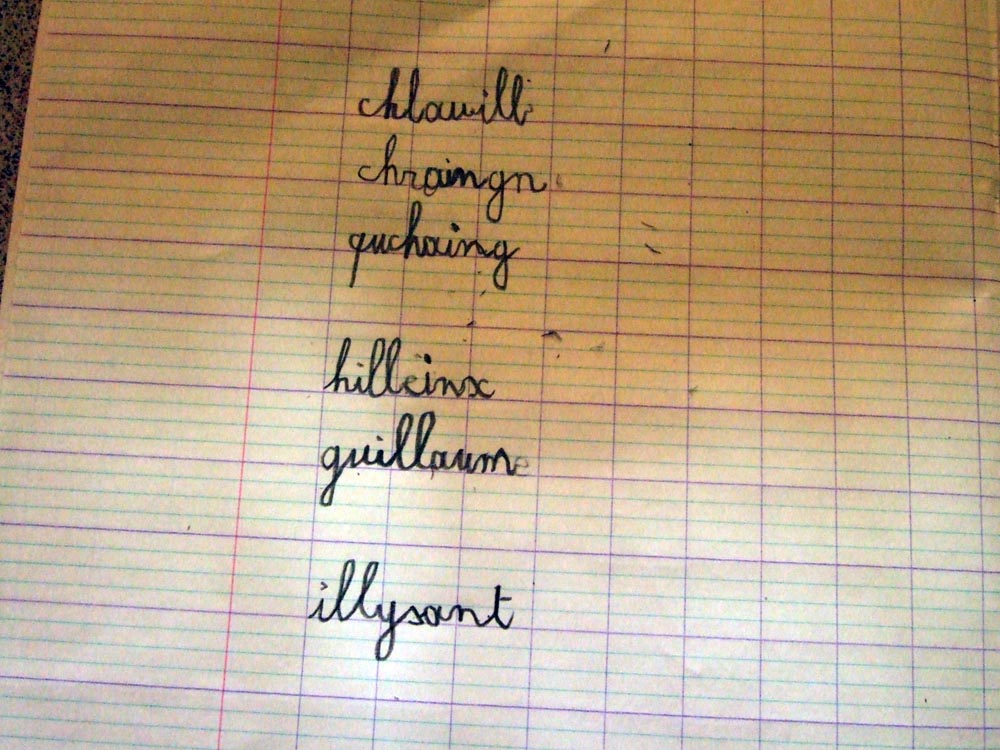 chlauill
chraingn
quchaing
hilleinx
guillaume
illysant